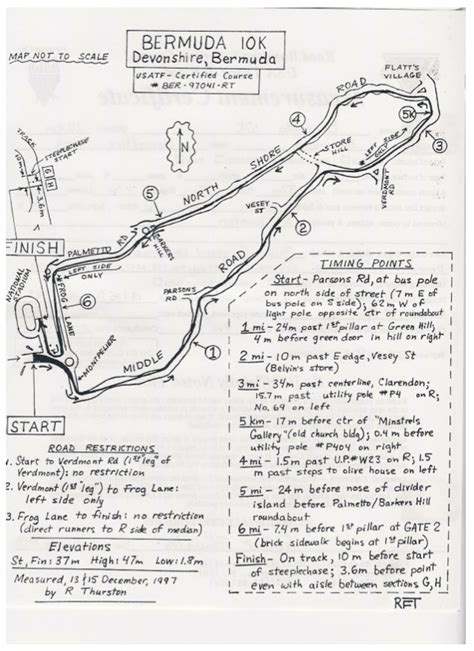 BERMUDA 10K
Devonshire, Bermuda
USATF - Certified Course
# BER - 97041-RT
MAP NOT TO SCALE
FLATT'S
VILLAGE
ROAD
5K
4
3
STORE
HILL
LEFT SIDE
ONLY
VERDMONT
RD
N
SHORE
NORTH
TRACK
STEEPLECHASE
START
10m
G H
3.6m
5
VESEY
ST
2
FINISH
PALMETTO RD
BARKERS
HILL
LEFT SIDE
ONLY
NATIONAL
STADIUM
FROG
LANE
6
ROAD
PARSONS
RD
MONTPELIER
MIDDLE
1
START
TIMING POINTS
Start - Parsons Rd, at bus pole
on north side of street (7m E of
bus pole on S side); 62m W of
light pole opposite ctr of roundabout
1 mi - 24m past 1st pillar at Green Hill;
4m before green door in hill on right
2 mi - 10m past E edge, Vesey St
(Belvin's store)
3 mi - 34m past centerline, Clarendon;
15.7m past utility pole #P4 on R;
No. 69 on left
5 km - 17m before ctr of "Minstrels
Gallery" (old church bldg); 0.4m before
utility pole #P404 on right
4 mi - 1.5m past U.P.#W23 on R; 1.5
m past steps to olive house on left
5 mi - 24m before nose of divider
island before Palmetto/Barkers Hill
roundabout
6 mi - 7.4m before 1st pillar at GATE 2
(brick sidewalk begins at 1st pillar)
Finish - On track, 10m before start
of steeplechase; 3.6m before point
even with aisle between sections G, H
ROAD RESTRICTIONS
1. Start to Verdmont Rd (1st "leg" of
Verdmont); no restriction
2. Verdmont (1st "leg") to Frog Lane:
left side only
3. Frog Lane to finish: no restriction
(direct runners to R side of median)
Elevations
St, Fin: 37m High: 47m Low: 1.8m
Measured, 13 & 15 December, 1997
by R Thurston
RFT